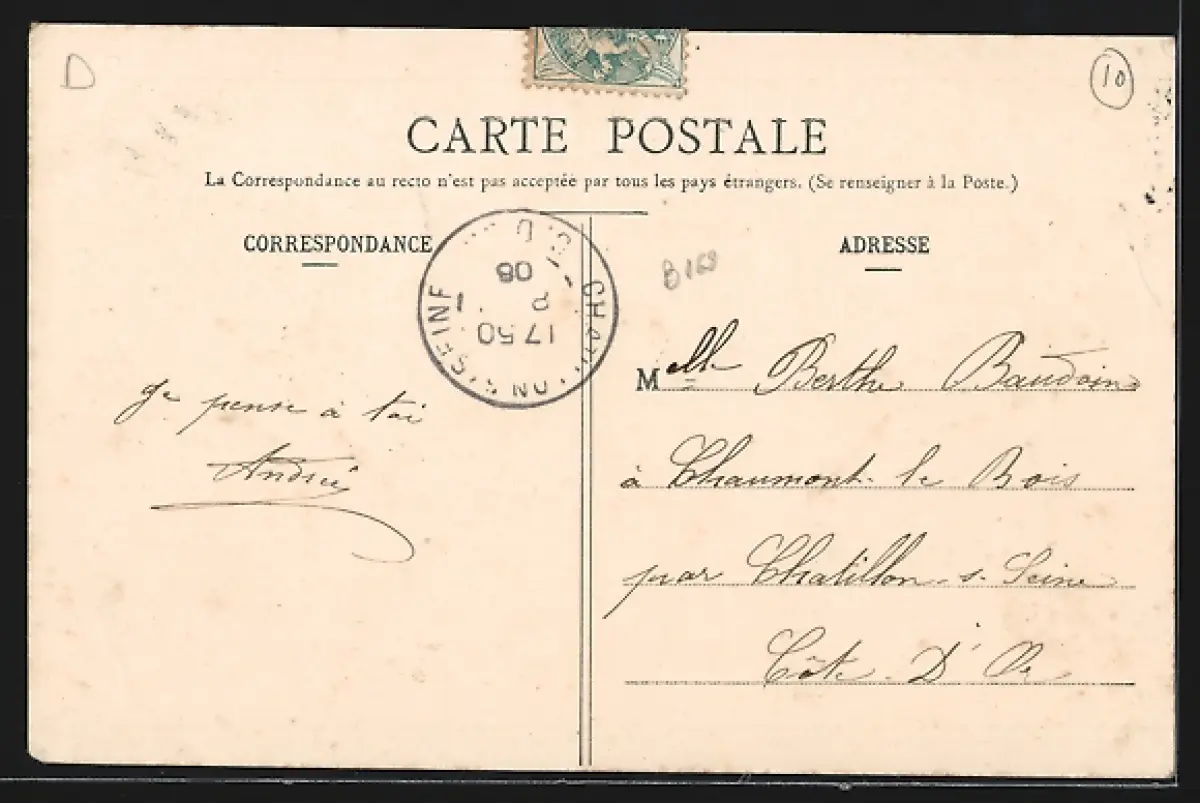 D
10
CARTE POSTALE
La Correspondance au recto n'est pas acceptée par tous les pays étrangers. (Se renseigner à la Poste.)
CORRESPONDANCE
ADRESSE
B168
17 50
2
08
Je pense à toi
André
Melle Berthe Baudoin
à Chaumont-le Bois
par Chatillon-s-Seine
Côte-D'Or